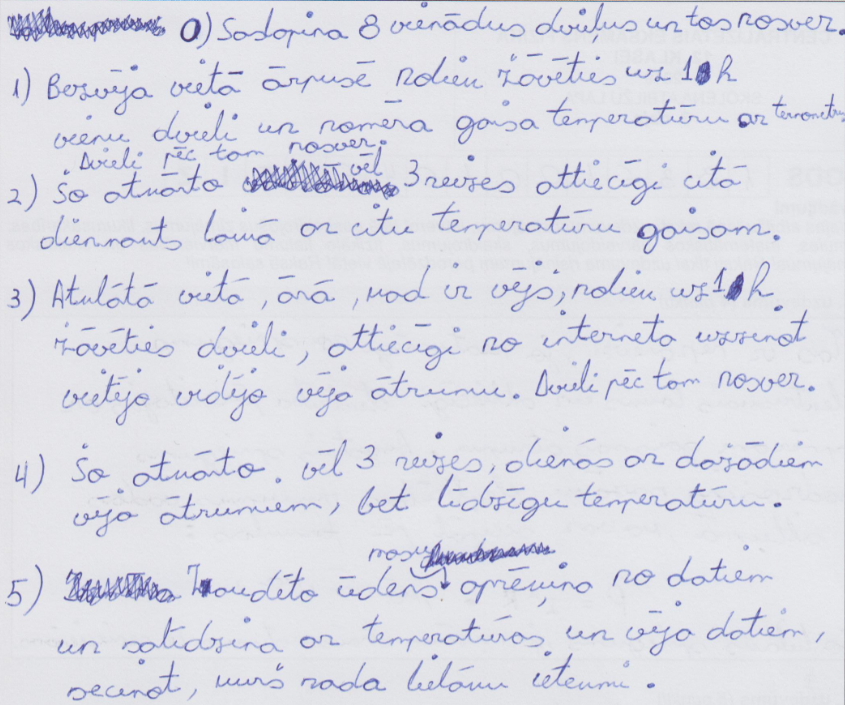 0) Saslapina 8 vienādus dvieļus un tos nosver.
1) Bezvēja vietā ārpusē noliek žāvēties uz 1 h
vienu dvieli un nomēra gaisa temperatūru ar termometru.
Dvieli pēc tam nosver.
2) Šo atkārto vēl 3 reizes attiecīgi citā
diennakts laikā ar citu temperatūru gaisam.
3) Atklātā vietā, ārā, kad ir vējš, noliek uz 1 h
žāvēties dvieli, attiecīgi no interneta uzzinot
vietējo vidējo vēja ātrumu. Dvieli pēc tam nosver.
4) Šo atkārto vēl 3 reizes, dienās ar dažādiem
vēja ātrumiem, bet līdzīgu temperatūru.
5) Zaudēto ūdens masu aprēķina no datiem
un salīdzina ar temperatūras un vēja datiem,
secinot, kurš rada lielāku ietekmi.